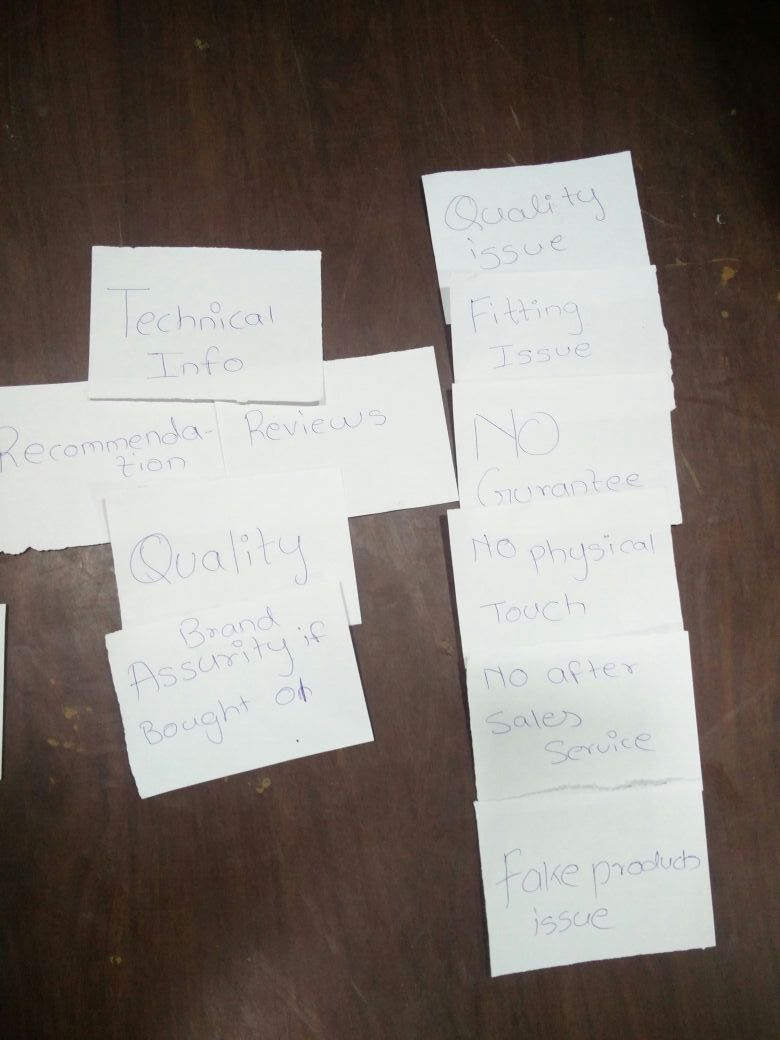 Technical
Info
Recommenda-
tion
Reviews
Quality
Brand
Assurity if
Bought
Quality
issue
Fitting
Issue
NO
Gurantee
NO physical
Touch
NO after
Sales
Service
fake products
issue